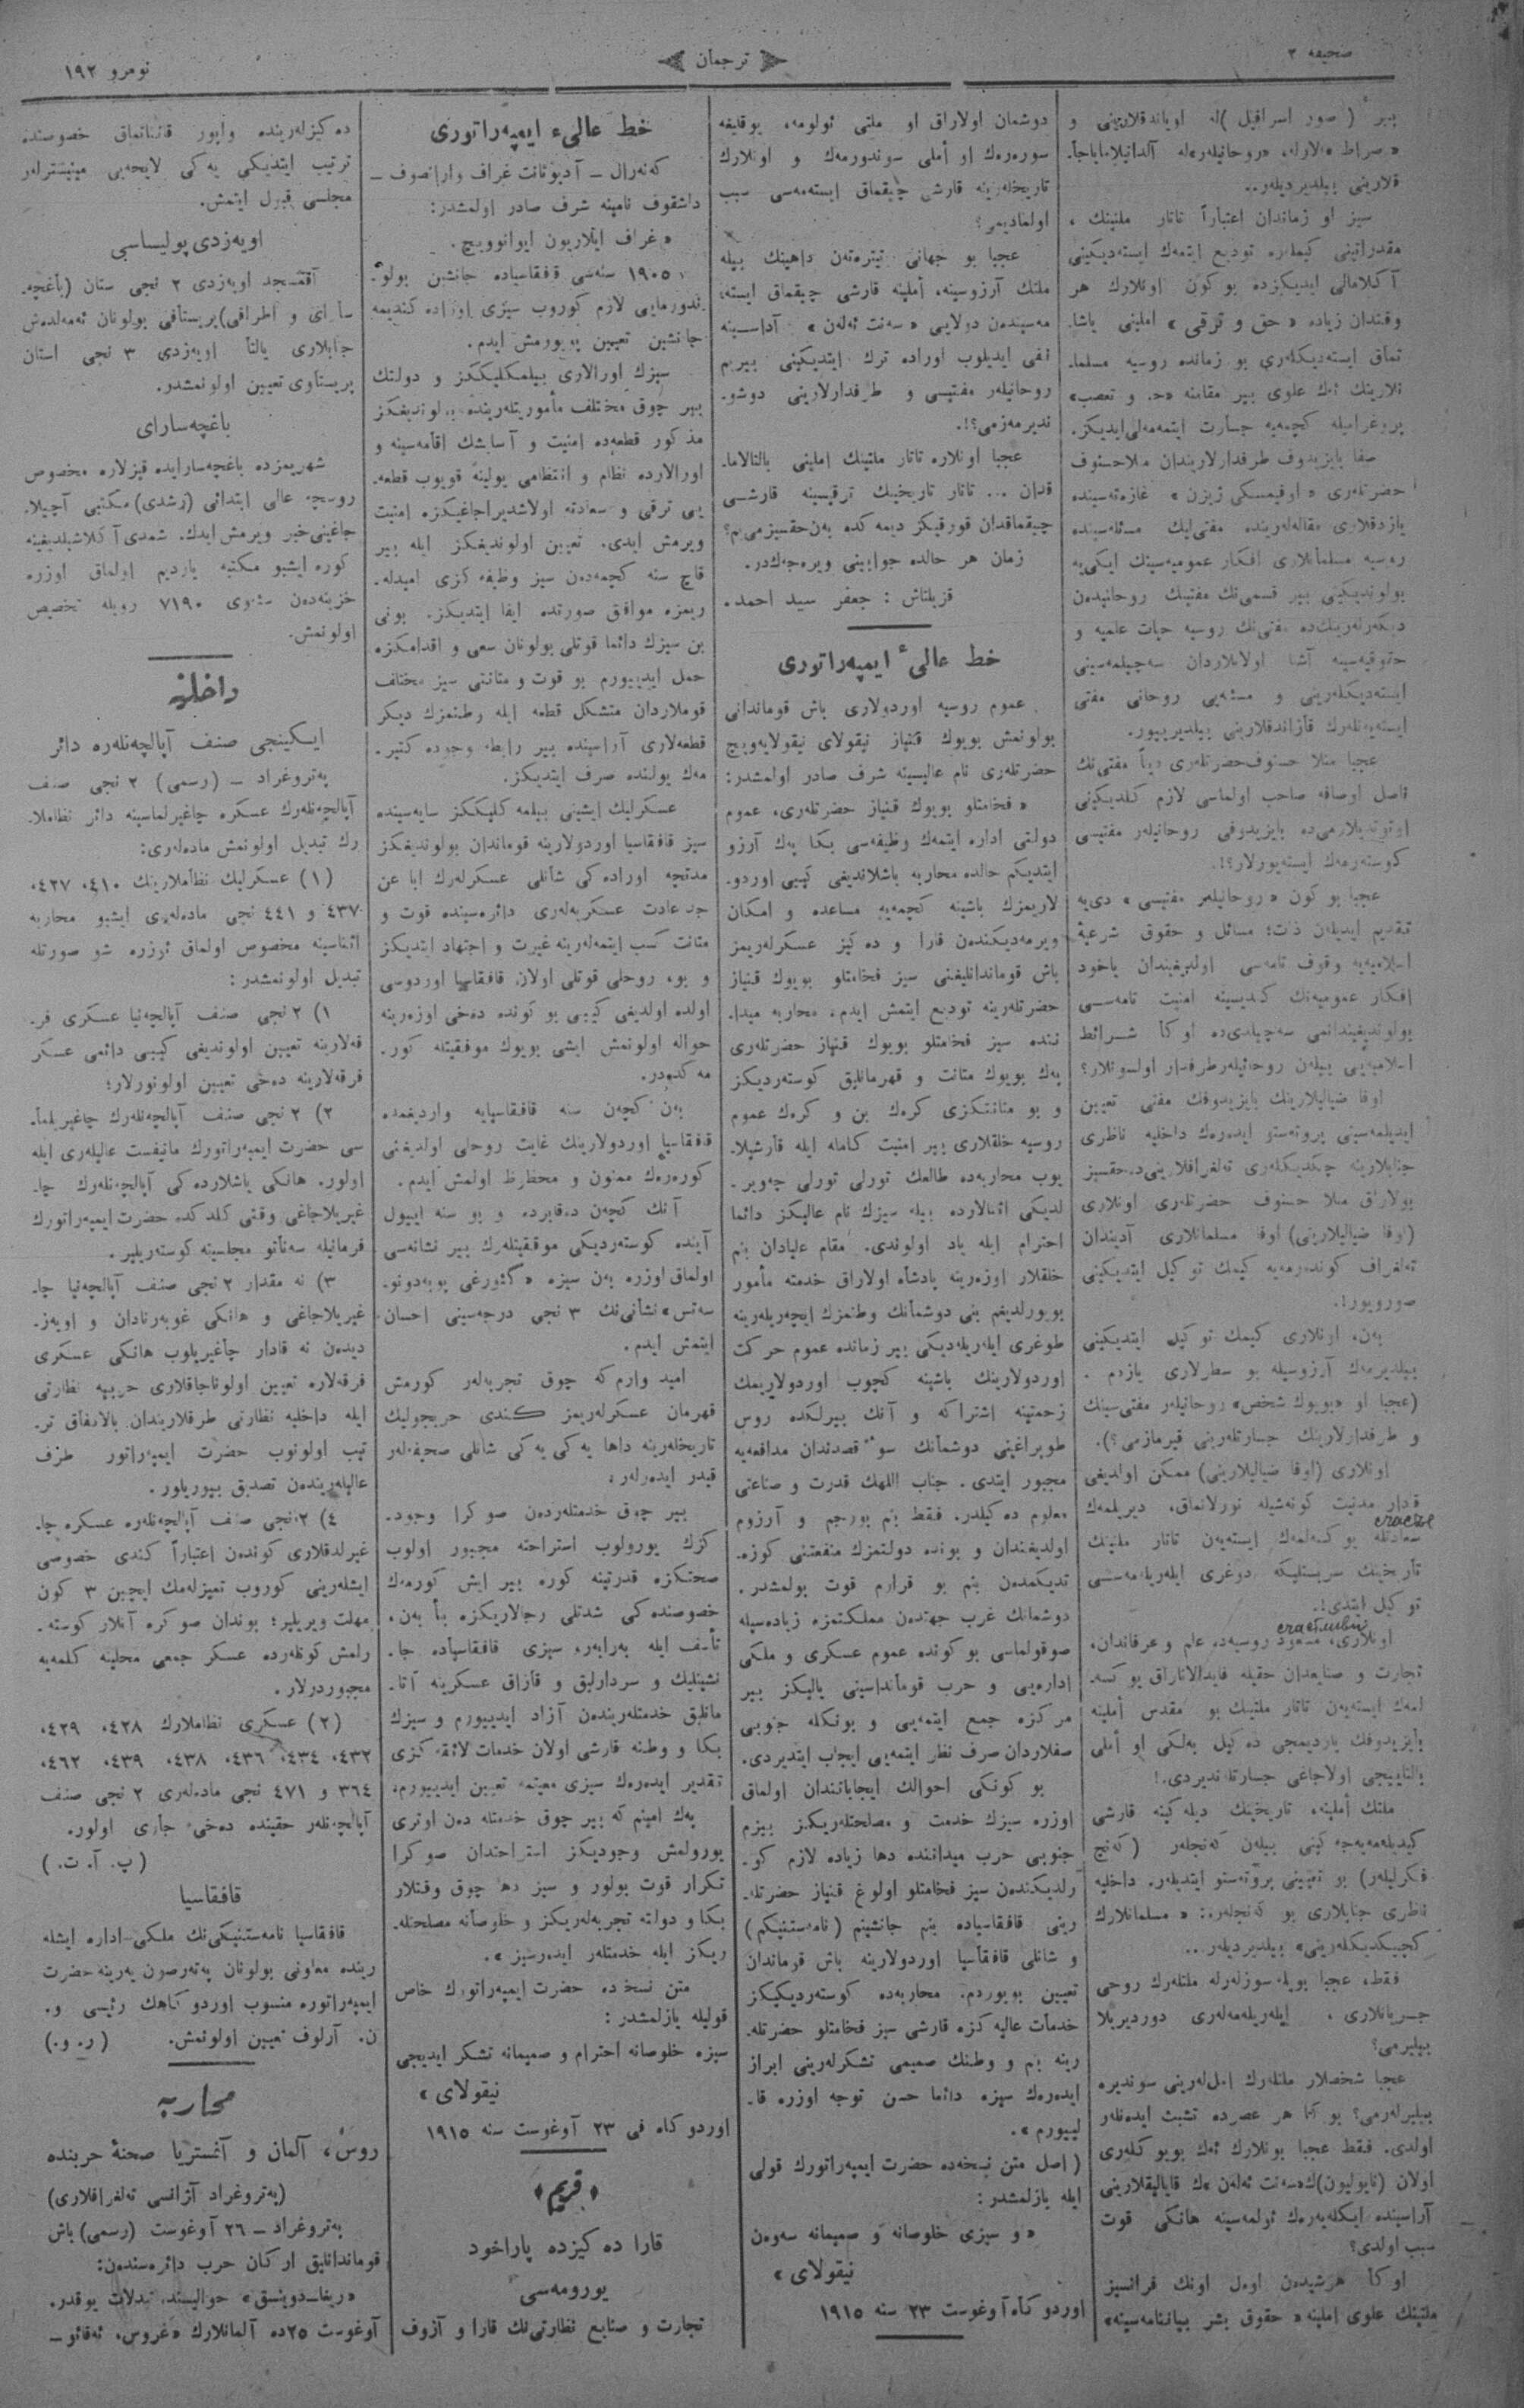 صحیفه ۲
ترجمان
نومرو ۱۹۲
بیر ( صور اسرافیل )له اویاندقلارینی و
قلارینی بیلدیردیلەر..
سیز او زماندان اعتباراً تاتار ملتینك ،
مقدراتینی کیملره تودیع ایتمەك ایستەدیکینی
آکلامالی ایدیکزده بو کون اونلارك هر
وقتدان زیاده « حق و ترقی » املینی یاشا-
تماق ایستەدیکلەری بو زمانده روسیه مسلما-
نلارینك اڭ علوی بیر مقامنه
پروغرامیله کچمەیه جسارت ایتمەمەلی ایدیکز.
صفا بایزیدوف طرفدارلاریندان ملاحسنوف
یازدقلاری مقالەلەرینده مفتی‌لیك مسئلەسینده
روسیه مسلمانلاری افکار عمومیەسینك ایکی‌یه
بولوندیکینی بیر قسمی‌نك مفتینك روحانیدەن
حقوقیەسینه آشنا اولانلاردان سەچیلمەسینی
ایستەدیکلەرینی و مسئله‌یی روحانی مفتی
عجبا ملا حسنوف حضرتلەری
فاصل اوصافه صاحب اولماسی لازم کلدیکینی
کوستەرمەك ایستەیورلار؟!.
عجبا بو کون « روحانیلەر مفتیسی » دی‌یه
تقدیم ایدیلەن ذات؛ مسائل و حقوق شرعیهٔ
اسلامیەیه وقوف تامەسی اولدیغیندان یاخود
افکار عمومیەنك کندیسینه امنیت تامەسی
بولوندیغیندانمی سەچیلدی‌ده او کا شرائط
اسلامیه‌یی بیلەن روحانیلەر طرفدار اولسونلار؟
اوفا ضیالیلارینك بایزیدوفك مفتی تعیین
ایدیلمەسینی پروتەستو ایدەرەك داخلیه ناظری
جنابلارینه چکدیکلەری تەلغرافلارینی‌ده حقسیز
بولاراق ملا حسنوف حضرتلەری اونلاری
(اوفا ضیالیلارینی) اوفا مسلمانلاری آدیندان
تەلغراف کوندەرمەیه کیمك توکیل ایتدیکینی
صورویور!.
بەن، اونلاری کیمك توکیل ایتدیکینی
بیلدیرمەك آرزوسیله بو سطرلاری یازدم .
(عجبا او «بویوك شخص» روحانیلەر مفتی‌سینك
و طرفدارلارینك جسارتلەرینی قیرمازمی؟).
اونلاری (اوفا ضیالیلارینی) ممکن اولدیغی
قدار مدنیت کونەشیله نورلانماق، دیریلمەك
счастье
سعادتله یوکسەلمەك ایستەیەن تاتار ملتینك
توکیل ایتدی!.
счастливый
اونلاری، مسعود روسیەده علم و عرفاندان،
تجارت و صنایعدان حقیله فایدالاناراق یوکسە-
لمەك ایستەیەن تاتار ملتینك بو مقدس أملینه
بایزیدوفك یاردیمچی دە‌کیل بەلکی او أملی
بالتاییجی اولاجاغی جسارتلاندیردی.!
ملتك أملینه، تاریخینك دیلەکینه قارشی
کیدیلەمەیەجەکینی بیلەن کەنجلەر (کەنج
فکرلیلەر) بو تعیینی پروتەستو ایتدیلەر. داخلیه
ناظری جنابلاری بو کەنجلەره: « مسلمانلارك
کچیکدیکلەرینی» بیلدیردیلەر...
فقط، عجبا بویله سوزلەرله ملتلەرك روحی
جریانلاری ، ایلەریلەمەلەری دوردیریلا
بیلیرمی؟
عجبا شخصلار ملتلەرك امل‌لەرینی سوندیره
بیلیرلەرمی؟ بو کا هر عصرده تشبث ایدەنلەر
اولدی. فقط عجبا بونلارك اڭ بویوکلەری
آراسینده ایکلەیەرەك ئولمەسینه هانکی قوت
سبب اولدی؟
او کا هرشیدەن اول اونك فرانسیز
ملتینك علوی املینه « حقوق بشر بیاننامەسینه»
دوشمان اولاراق او ملتی ئولومه، یوقلیغه
سورەرەك او أملی سوندورمەك و اونلارك
تاریخلەرینه قارشی چیقماق ایستەمەسی سبب
اولمادیمی؟
عجبا بو جهانی تیترەتەن داهینك بیله
ملتك آرزوسینه، أملینه قارشی چیقماق ایستە-
مەسیندەن دولایی « سەنت ئەلەن » آداسینه
نفی ایدیلوب اوراده ترك ایتدیکینی بیزیم
روحانیلەر مفتیسی و طرفدارلارینی دوشو-
ندیرمەزمی؟!.
عجبا اونلاره تاتار ملتینك املینی بالتالاما-
قدان ... تاتار تاریخینك ترقیسینه قارشی
چیقماقدان قورقیکز دیمەکده بەن حقسیزمی‌یم؟
زمان هر حالده جوابینی ویرەجەك‌در.
قزیلتاش : جعفر سید احمد.
خط عالیٔ ایمپەراتوری
عموم روسیه اوردولاری باش قوماندانی
بولونمش بویوك قنیاز نیقولای نیقولایەویچ
حضرتلەری نام عالیسینه شرف صادر اولمشدر:
« فخامتلو بویوك قنیاز حضرتلەری، عموم
دولتی اداره ایتمەك وظیفەسی بکا پەك آرزو
ایتدیکم حالده محاربه باشلاندیغی کیبی اوردو-
لاریمزك باشینه کچمەیه مساعده و امکان
ویرمەدیکندەن قارا و دەکیز عسکرلەریمز
باش قوماندانلیغینی سیز فخامتلو بویوك قنیاز
حضرتلەرینه تودیع ایتمش ایدم، محاربه میدا-
ننده سیز فخامتلو بویوك قنیاز حضرتلەری
پەك بویوك متانت و قهرمانلیق کوستەردیکز
و بو متانتکزی کرەك بن و کرەك عموم
روسیه خلقلاری بیر امنیت کامله ایله قارشیلا-
یوب محاربەده طالعك تورلی تورلی چەویر-
لدیکی اثنالارده بیله سیزك نام عالیکز دائما
احترام ایله یاد اولوندی. مقام علیادان بنم
خلقلار اوزەرینه پادشاه اولاراق خدمته مأمور
بویورلدیغم بنی دوشمانك وطنمزك ایچەریلەرینه
طوغری ایلەریلەدیکی بیر زمانده عموم حرکت
اوردولارینك باشینه کچوب اوردولاریمك
زحمتینه اشتراکه و آنك بیرلکده روس
طوپراغینی دوشمانك سوٴ قصدندان مدافعەیه
مجبور ایتدی. جناب اللهك قدرت و صناعتی
معلوم دەکیلدر. فقط بنم بورجم و آرزوم
اولدیغندان و بونده دولتمزك منفعتنی کوزە-
تدیکمدەن بنم بو قرارم قوت بولمشدر.
دوشمانك غرب جهتدەن مملکتمزه زیادەسیله
صوقولماسی بو کونده عموم عسکری و ملکی
ادارەیی و حرب قوماندانسینی یالیکز بیر
مرکزه جمع ایتمەیی و بونکله جنوبی
صفلاردان صرف نظر ایتمەیی ایجاب ایتدیردی.
بو کونکی احوالك ایجاباتندان اولماق
اوزره سیزك خدمت و مصلحتلەریکز بیزم
جنوبی حرب میداننده دها زیاده لازم کو-
رلدیکندەن سیز فخامتلو اولوغ قنیاز حضرتلە-
رینی قافقاسیاده بنم جانشینم (نامەستنیکم)
و شانلی قافقاسیا اوردولارینه باش قوماندان
تعیین بویوردم. محاربەده کوستەردیکیکز
خدمات عالیەکزه قارشی سیز فخامتلو حضرتلە-
رینه بنم و وطنك صمیمی تشکرلەرینی ابراز
ایدەرەك سیزه دائما حسن توجه اوزره قا-
لییورم ».
( اصل متن نسخەده حضرت ایمپەراتورك قولی
ایله یازلمشدر:
« و سیزی خلوصانه و صمیمانه سەوەن
نیقولای »
اوردو کاه آوغوست ۲۳ سنه ۱۹۱۵
خط عالیٔ ایمپەراتوری
کەنەرال - آدیوتانت غراف وارانصوف -
داشقوف نامینه شرف صادر اولمشدر:
« غراف ایللاریون ایوانوویچ.
۱۹۰۵ سنەسی قافقاسیاده جانشین بولو-
ندورمایی لازم کوروب سیزی اوراده کندیمه
جانشین تعیین بویورمش ایدم.
سیزك اورالاری بیلمکلیککز و دولتك
بیر چوق مختلف مأموریتلەرینده بولوندیغکز
مذکور قطعەده امنیت و آسایشك اقامەسینه و
اورالارده نظام و انتظامی یولینه قویوب قطعە-
یی ترقی و سعادته اولاشدیراجاغیکزه امنیت
ویرمش ایدی. تعیین اولوندیغکز ایله بیر
قاچ سنه کچمەدەن سیز وظیفەکزی امیدلە-
ریمزه موافق صورتده ایفا ایتدیکز. بونی
بن سیزك دائما قوتلی بولونان سعی و اقدامکزه
حمل ایدییورم بو قوت و متانتی سیز مختلف
قوملاردان متشکل قطعه ایله وطنمزك دیکر
قطعەلاری آراسینده بیر رابطه وجوده کتیر-
مەك یولنده صرف ایتدیکز.
عسکرلیك ایشینی بیلمه کلیککز سایەسینده
سیز قافقاسیا اوردولارینه قوماندان بولوندیغکز
مدتچه اورادەکی شانلی عسکرلەرك ابا عن
جد عادت عسکریەلەری دائرەسینده قوت و
متانت کسب ایتمەلەرینه غیرت و اجتهاد ایتدیکز
و بو، روحلی قوتلی اولان قافقاسیا اوردوسی
اولده اولدیغی کیبی بو کونده دەخی اوزەرینه
حواله اولونمش ایشی بویوك موفقیتله کور-
مەکدەدر.
بەن کچەن سنه قافقاسیایه واردیغمده
قافقاسیا اوردولارینك غایت روحلی اولدیغنی
کورەرەك ممنون و محظوظ اولمش ایدم.
آنك کچەن دەقابرده و بو سنه اییول
آینده کوستەردیکی موفقیتلەرك بیر نشانەسی
اولماق اوزره بەن سیزه « گئورغی پوبەدونو-
سەتس » نشانی‌نك ۳ نجی درجەسینی احسان
ایتمش ایدم.
امید وارم که چوق تجربەلەر کورمش
قهرمان عسکرلەریمز کندی حربجولیك
تاریخلەرینه داها یەکی یەکی شانلی صحیفەلەر
قیدر ایدەرلەر.
بیر چوق خدمتلەردەن صوکرا وجود-
کزك یورولوب استراحته مجبور اولوب
صحتکزه قدرتینه کوره بیر ایش کورمەك
خصوصندەکی شدتلی رجالاریکزه بنأ بەن،
تأسف ایله بەرابەر، سیزی قافقاسیاده جا-
نشینلیك و سردارلیق و قازاق عسکرینه آتا-
مانلیق خدمتلەریندەن آزاد ایدییورم و سیزك
بکا و وطنه قارشی اولان خدمات لائقەکزی
تقدیر ایدەرەك سیزی معیتمه تعیین ایدییورم،
پەك امینم که بیر چوق خدمتلەدەن اوتری
یورولمش وجودیکز استراحتدان صوکرا
تکرار قوت بولور و سیز دها چوق وقتلار
بکا و دولته تجربەلەریکز و خلوصانه مصلحتلە-
ریکز ایله خدمتلەر ایدەرسیز ».
متن نسخەده حضرت ایمپەراتورك خاص
قولیله یازلمشدر :
سیزه خلوصانه احترام و صمیمانه تشکر ایدیجی
نیقولای »
اوردو کاه فی ۲۳ آوغوست سنه ۱۹۱۵
﴿ قریم ﴾
قارا دەکیزده پاراخود
یورومەسی
تجارت و صنایع نظارتی‌نك قارا و آزوف
دەکیزلەرینده واپور قاتناتماق خصوصنده
ترتیب ایتدیکی یەکی لایحەیی مینیسترلەر
مجلسی قبول ایتمش.
اویەزدی پولیساسی
آقمسجد اویەزدی ۲ نجی ستان (باغچە-
سارای و اطرافی) پریستافی بولونان
جنابلاری یالتا اویەزدی ۳ نجی استان
پریستاوی تعیین اولونمشدر.
باغچەسارای
شهریمزده باغچەسارایده قیزلاره مخصوص
روسچه عالی ابتدائی (رشدی) مکتبی آچیلا-
جاغینی خبر ویرمش ایدك. شمدی آکلاشیلدیغینه
کوره ایشبو مکتبه یاردیم اولماق اوزره
خزینەدەن سنوی ۷۱۹۰ روبله تخصیص
اولونمش.
داخلیه
ایکینجی صنف آپالچەنلەره دائر
پەتروغراد - (رسمی) ۲ نجی صنف
آپالچەنلەرك عسکره چاغیرلماسینه دائر نظاملا-
رك تبدیل اولونمش مادەلەری:
(۱) عسکرلیك نظاملارینك ۴۱۰، ۴۲۷،
۴۳۷ و ۴۴۱ نجی مادەلەری ایشبو محاربه
اثناسینه مخصوص اولماق اوزره شو صورتله
تبدیل اولونمشدر:
۱) ۲ نجی صنف آپالچەنیا عسکری فر-
قەلارینه تعیین اولوندیغی کیبی دائمی عسکر
فرقەلارینه دەخی تعیین اولونورلار؛
۲) ۲ نجی صنف آپالچەنلەرك چاغیریلما-
سی حضرت ایمپەراتورك مانیفست عالیلەری ایله
اولور. هانکی یاشلاردەکی آپالچەنلەرك چا-
غیریلاجاغی وقتی کلدکده حضرت ایمپەراتورك
فرمانیله سەناتو مجلسینه کوستەریلیر.
۳) نه مقدار ۲ نجی صنف آپالچەنیا چا-
غیریلاجاغی و هانکی غوبەرنادان و اویەز-
دیدەن نه قادار چاغیریلوب هانکی عسکری
فرقەلاره تعیین اولوناجاقلاری حربیه نظارتی
ایله داخلیه نظارتی طرفلاریندان بالاتفاق تر-
تیب اولونوب حضرت ایمپەراتور طرف
عالیلەریندەن تصدیق بیوریلور.
۴) ۲ نجی صنف آپالچەنلەره عسکره چا-
غیرلدقلاری کوندەن اعتباراً کندی خصوصی
ایشلەرینی کوروب تمیزلەمك ایچین ۳ کون
مهلت ویریلیر؛ بوندان صوکره آنلار کوستە-
رلمش کونلەرده عسکر جمعی محلینه کلمەیه
مجبوردرلار.
(۲) عسکری نظاملارك ۴۲۸، ۴۲۹،
۴۳۲، ۴۳۴، ۴۳۶، ۴۳۸، ۴۳۹، ۴۶۲،
۳۶۴ و ۴۷۱ نجی مادەلەری ۲ نجی صنف
آپالچەنلەر حقینده دەخی جاری اولور.
(پ. آ. ت.)
قافقاسیا
قافقاسیا نامەستنیکی‌نك ملکی اداره ایشلە-
رینده معاونی بولونان پەتەرصون یەرینه حضرت
ایمپەراتوره منسوب اوردو کاهك رئیسی و.
ن. آرلوف تعیین اولونمش. (ر. و.)
محاربه
روس، آلمان و آئستریا صحنهٔ حربنده
(پەتروغراد آژانسی تەلغرافلاری)
پەتروغراد - ۲۶ آوغوست (رسمی) باش
قوماندانلیق ارکان حرب دائرەسندەن:
«ریغا-دوینسق» حوالیسنده تبدلات یوقدر.